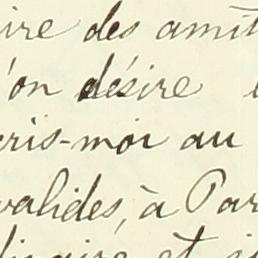 ire des amit
'on désire
cris-moi au
valides, à Par
et